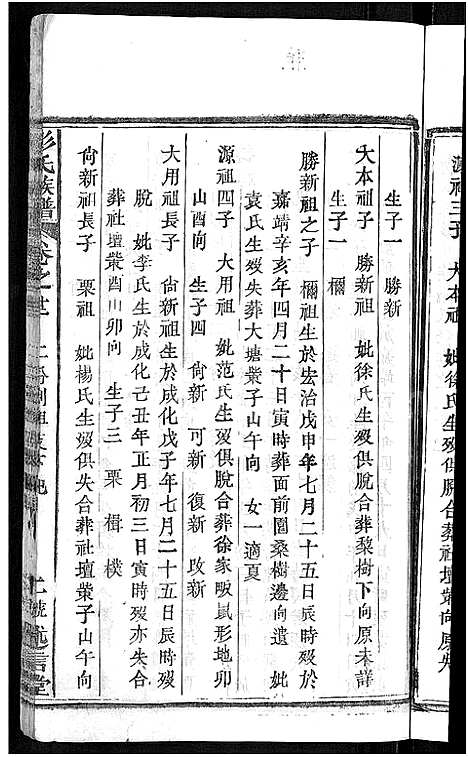 源祖三子　大本祖　妣徐氏生殁俱脫合葬社壇叢向原失
生子一　勝新
大本祖子　勝新祖　妣徐氏生殁俱脫合葬黎樹下向原未詳
生子一　禰
勝新祖之子　禰祖生於宏治戊申年七月二十五日辰時殁於
嘉靖辛亥年四月二十日寅時葬面前園桑樹邊向遺　妣
袁氏生殁失葬大塘叢子山午向　女一適夏
源祖四子　大用祖　妣范氏生殁俱脫合葬徐家畈鼠形地卯
山酉向　生子四　尙新　可新　復新　攻新
大用祖長子　尙新祖生於成化戊子年七月二十五日辰時殁
脫　妣李氏生於成化己丑年正月初三日寅時殁亦失合
葬社壇叢酉山卯向　生子三　栗　楫　樸
尙新祖長子　栗祖　妣楊氏生殁俱失合葬社壇叢子山午向
彭氏族譜　卷之
述信堂